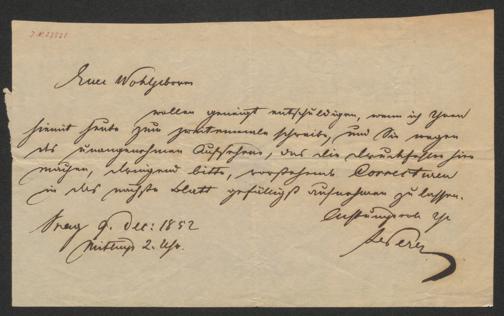 J.N. 27521
Euer Wohlgeboren
wollen geneigt entschuldigen, wenn ich Ihnen
hiemit heute zum zweitenmale schreibe, und Sie wegen
des unangenehmen Aufsehens, das die Druckfehler hier
machen, dringend bitte, vorstehende Correcturen
in das nächste Blatt gefälligst aufnehmen zu lassen.
Prag 9. Dec: 1852
Mittags 2. Uhr.